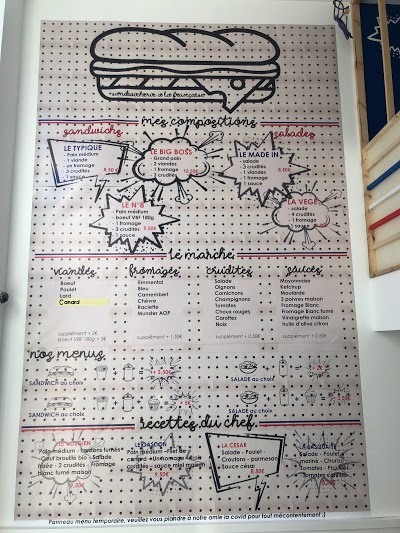 sandwicherie à la française
mes compositions
sandwichs
salades
LE TYPIQUE
- Pain médium
- 1 viande
- un fromage
- 3 crudités
- 1 sauce
8.50€
LE BIG BOSS
- Grand pain
- 2 viandes
- 1 fromage
- 3 crudités
10.50€
LE MADE IN
- salade
- 1 viande
- 1 fromage
- 3 crudités
- 1 sauce
8.50€
LE N°8
- Pain médium
- boeuf VBF 180g
- 1 fromage
- 3 crudités
- 1 sauce
9.50€
LA VEGE
- salade
- 4 crudités
- 1 fromage
- 1 sauce
le marché
viandes
Boeuf
Poulet
Lard
Canard
supplément + 2€
boeuf VBF 180g + 3€
fromages
Emmental
Bleu
Camembert
Chèvre
Raclette
Munster AOP
supplément + 1,50€
crudités
Salade
Oignons
Cornichons
Champignons
Tomates
Choux rouges
Carottes
Noix
supplément + 0,50€
sauces
Mayonnaise
Ketchup
Moutarde
3 poivres maison
Fromage blanc
Fromage blanc fumé
Vinaigrette maison
huile d'olive citron
supplément + 0,50€
nos menus
SANDWICH au choix
+ 3.50€
SALADE au choix
SANDWICH au choix
+ 5€
SALADE au choix
recettes du chef
Pain médium - lardons fumés
Oeuf brouillé bio - Salade
frisée - 2 crudités - Fromage
blanc fumé maison
9.50€
LE GASCON
Pain médium - Filet de
canard - un fromage - 3
crudités - sauce miel maison
9.50€
LA CESAR
Salade - Poulet -
Croutons - parmesan
Sauce césar
8.50€
Salade - Poulet -
mariné - Chorizo
Tomates -
Tomates
Panneau menu temporaire, veuillez vous plaindre à notre amie la covid pour tout mécontentement :)